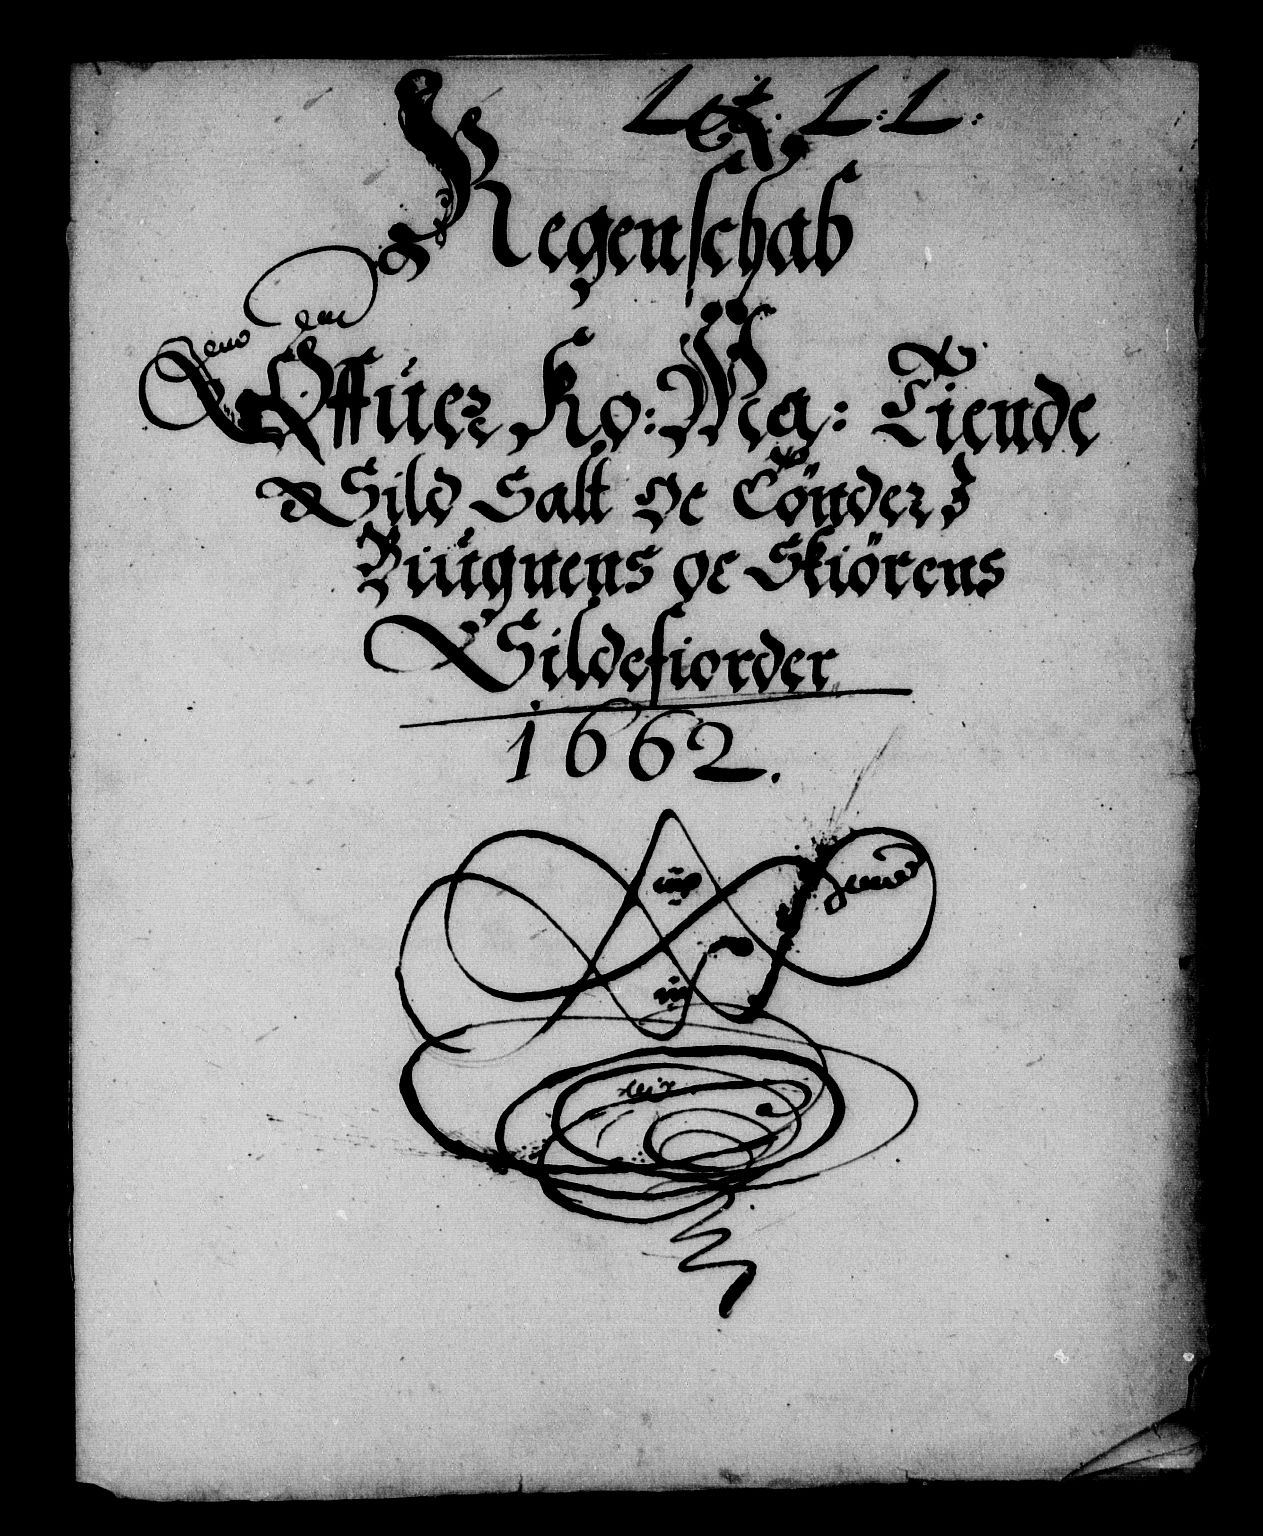 Lit. L:L:
Regenschab
Offüer Ko: Ma: Tiende
Sild Salt oc Tönder I
Büügnens oc Skiörens
Sildefiorder
1662.